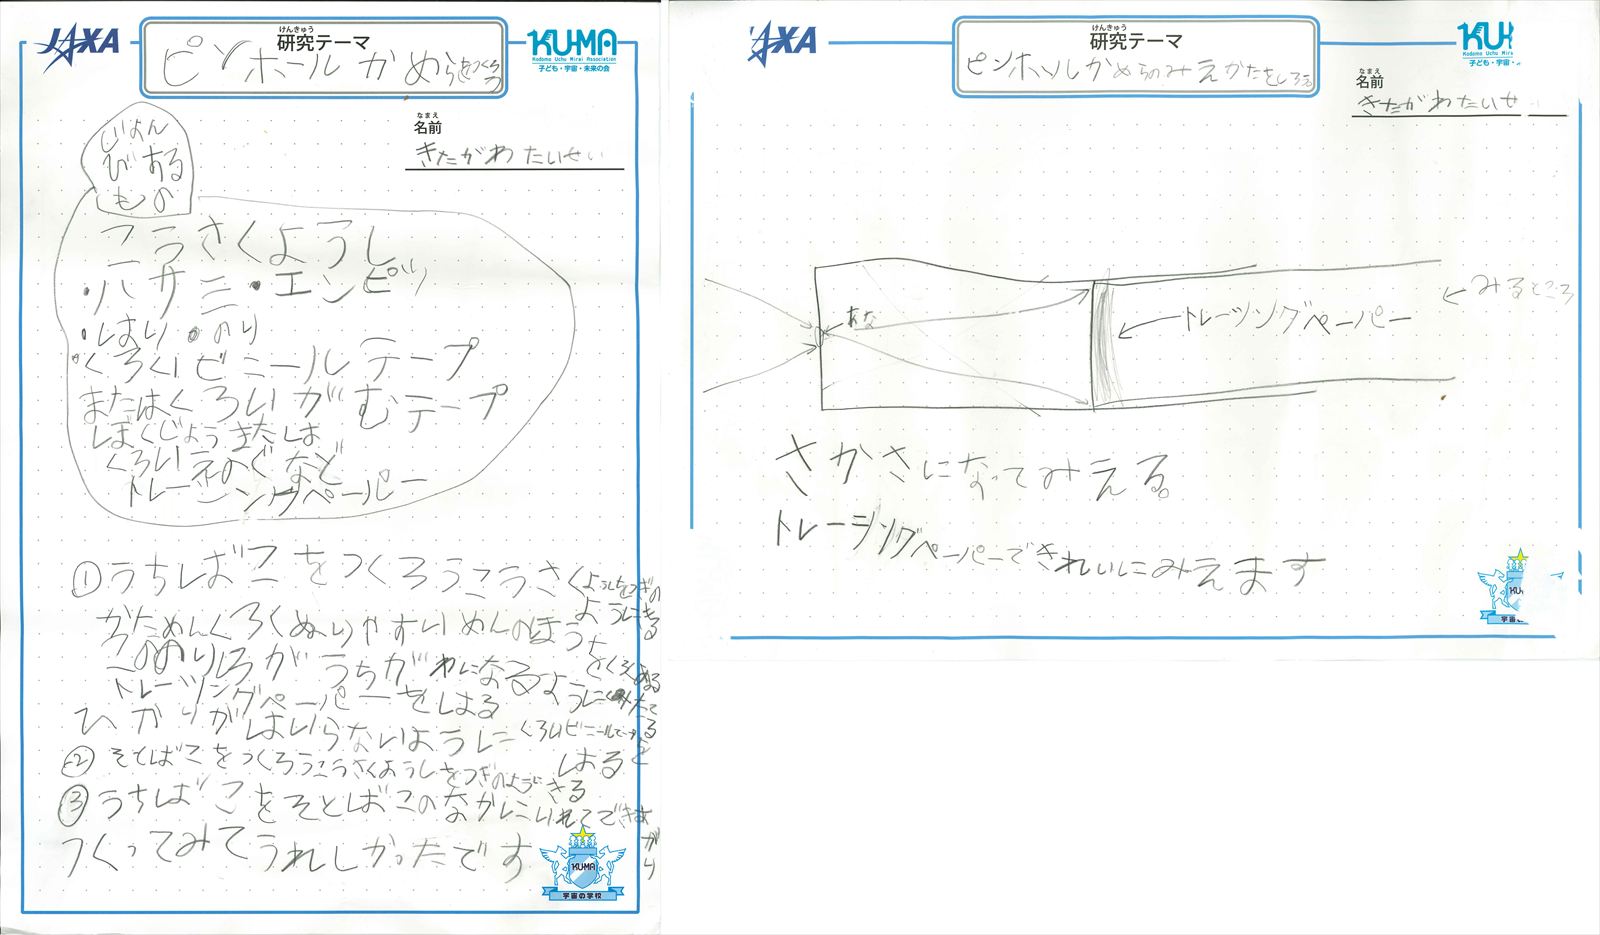 JAXA
けんきゅう
研究テーマ
KU-MA
Kodomo Uchu Mirai Association
子ども・宇宙・未来の会
ピンホールかめらをつくろう
なまえ
名前
きたがわ たいせい
じょん
びする
もの
こうさくようし
・ハサミ・エンピツ
・はり ・のり
・くろいビニールテープ
またはくろいがむテープ
ぼくじょうまたは
くろいえのぐなど
トレーシングペーパー
①うちばこをつくろうこうさくようしをつぎの
ようにきる
かためんくろくぬりやすいめんのほう
をくろくぬる
このめんくろがうちがわになるように
トレーシングペーパーをはる
ひかりがはいらないようにくろいビニールテープ
はる
②そとばこをつくろうこうさくようしをつぎのようにきる
③うちばこをそとばこのなかにいれてできあがり
つくってみてうれしかったです
KUMA
宇宙の学校
JAXA
けんきゅう
研究テーマ
KU
Kodomo Uchu Mirai
子ども・宇宙・
ピンホールかめらのみえかたをしろう
なまえ
名前
きたがわたいせ
あな
トレーシングペーパー
みるところ
さかさになってみえる。
トレーシングペーパーできれいにみえます
KU
宇宙